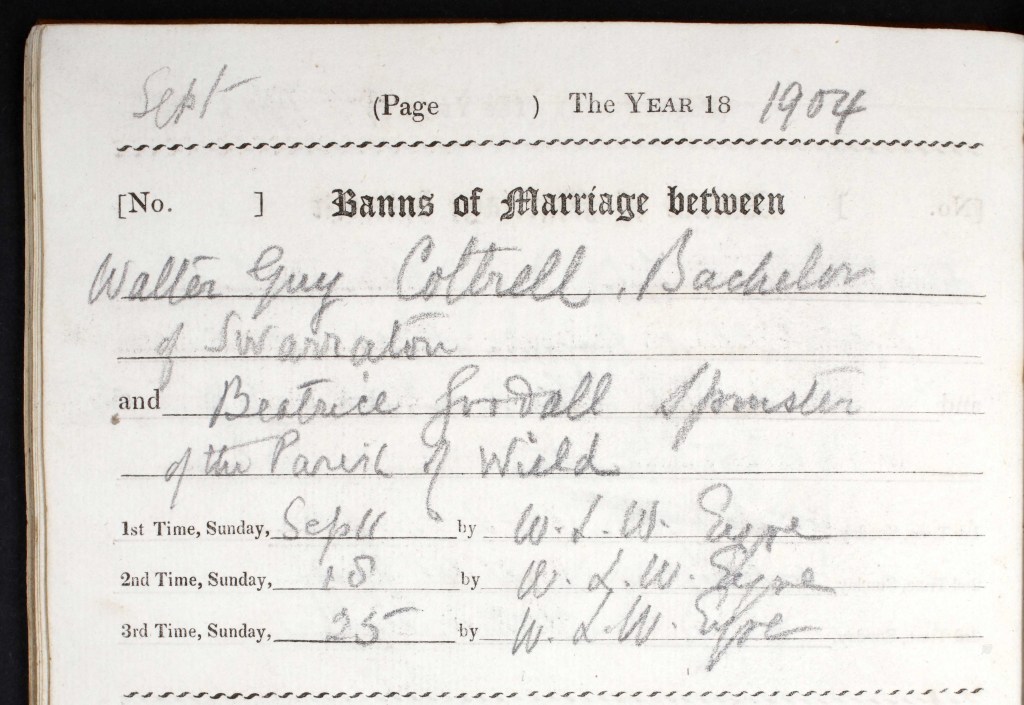 Sept (Page ) The YEAR 18 1904
[No. ] Banns of Marriage between
Walter Guy Cottrell, Bachelor
of Swarraton
and Beatrice Goodall Spinster
of the Parish of Wield
1st Time, Sunday, Sep 11 by W. L. W. Eyre
2nd Time, Sunday, 18 by W. L. W. Eyre
3rd Time, Sunday, 25 by W. L. W. Eyre